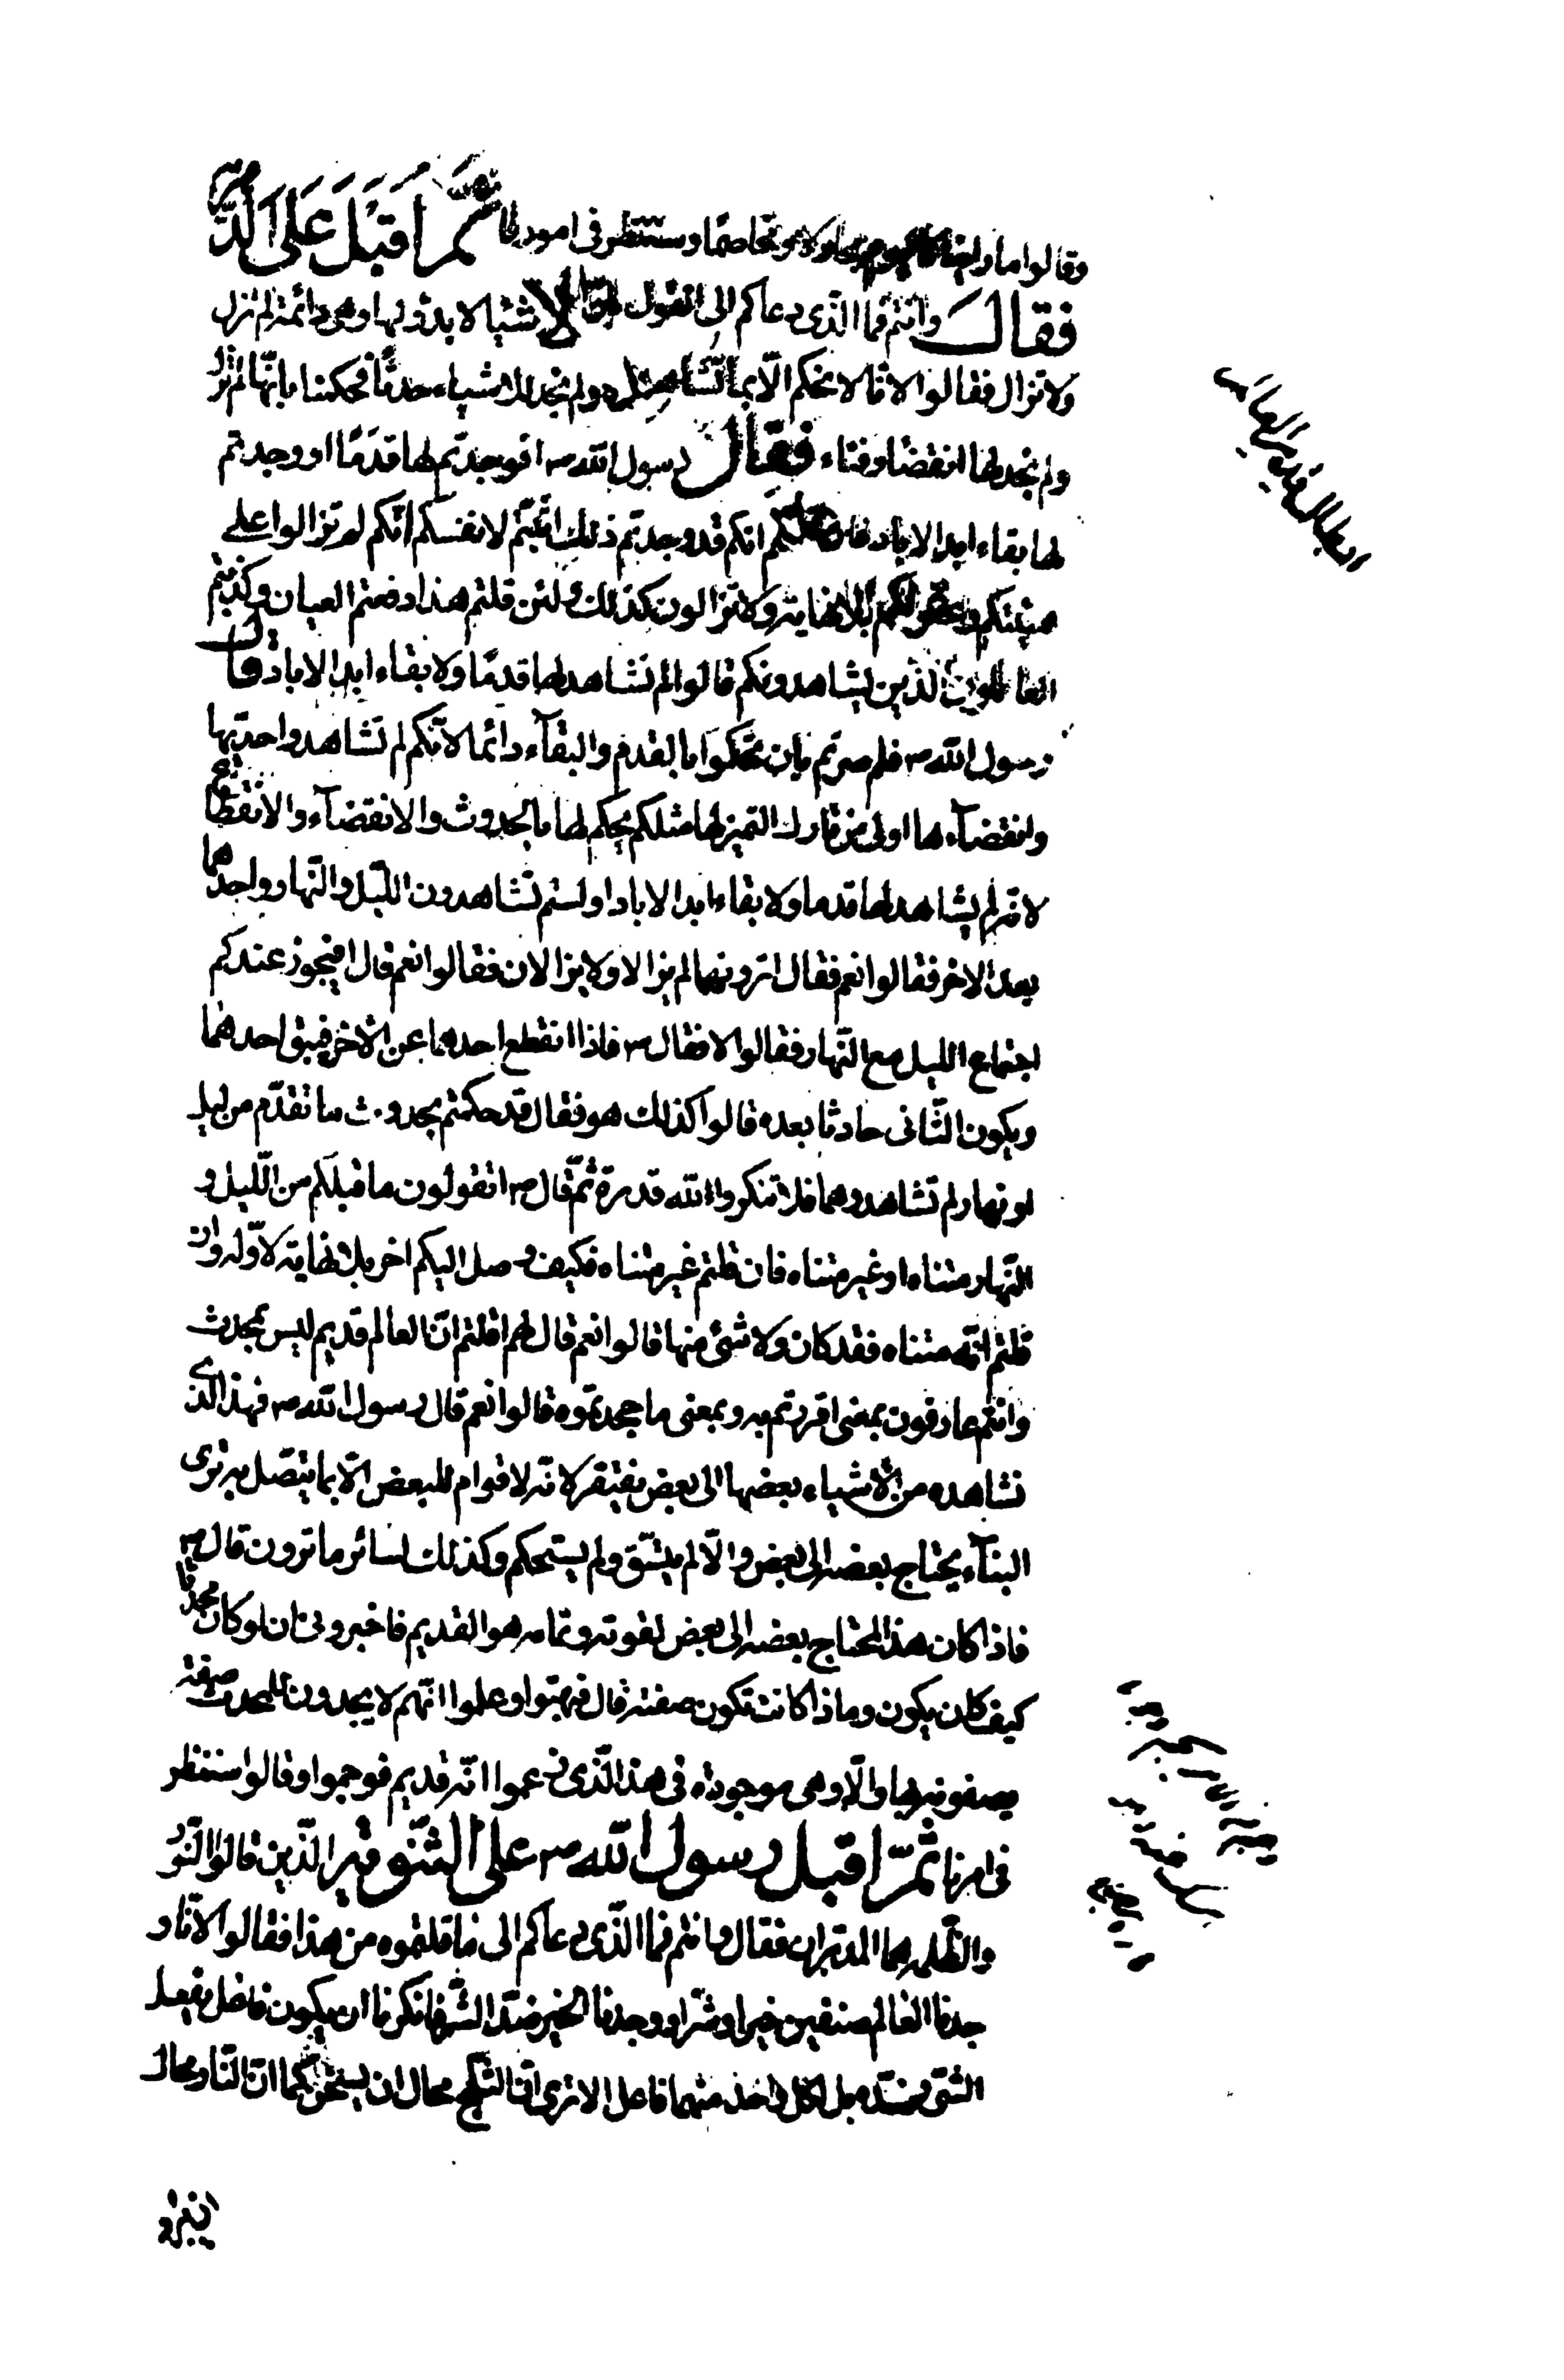 وقالوا ما راينا كاليوم مجادلا ولا مخاصما وسننظر فى امورنا ثُمَّ اَقبَلَ عَلَى الدَّهريه
فقال وانتم فما الذى دعاكم الى القول بان الاشيا لا بدؤ لها وهى دائمة لم تزل
ولا تزال فقالوا لانا لا نحكم الّا بما نشاهد ولم نجد للاشياء حدثا فحكمنا بانّها لم تزل
ولم نجد لها انقضا وفناء فقال رسول الله ص افوجدتم لها قدمًا او وجدتم
لها بقاء ابد الاباد فان قلتم انكم قد وجدتم ذلك اثبتّم لانفسكم انّكم لم تزالوا على
هيئتكم وعقولكم بلا نهاية ولا تزالون كذلك ولئن قلتم هذا دفعتم العيان وكذبكم
العالمون الذين يشاهدونكم قالوا لم نشاهد لها قدمًا ولا بقاء ابد الاباد قال
رسول الله ص فلم صرتم بان تحكموا بالقدم والبقآء دائما لانّكم لم تشاهدوا حدثها
وانقضآءها اولى من تارك التميز لها مثلكم يحكم لها بالحدوث والانقضآء والانقطاع
لانه لم يشاهد لها قدما ولا بقاء ابد الاباد اولستم تشاهدون الليل والنّهار واحدهما
بعد الاخر فقالوا نعم فقال اترونهما لم يزالا ولا يزالان فقالوا نعم قال افيجوز عندكم
اجتماع الليل مع النّهار فقالوا لا فقال ص فاذا انقطع احدهما عن الاخر فيبق احدهما
ويكون الثّانى حادثا بعده قالوا كذلك هو فقال قد حكمتم بحدوث ما تقدّم من ليل
او نهار لم تشاهدوهما فلا تنكروا لله قدرة ثمّ قال ص اتقولون ما قبلكم من اللّيل و
النّهار متناه او غير متناه فان قلتم غير متناه فكيف وصل اليكم اخر بلا نهاية لاوّله وان
قلتم انّه متناه فقد كان ولا شئ منها قالوا نعم قال لهم اقلتم انّ العالم قديم ليس بمحدث
وانتم عارفون بمعنى اقررتم به وبمعنى ما جحدتموه قالوا نعم قال رسول الله ص فهذا الّذى
نشاهده من الاشياء بعضها الى بعض يفتقر لانّه لا قوام للبعض الّا بما يتصل به نرى
البنآء يحتاج بعضه الى بعض والّا لم يتّسق ولم يستحكم وكذلك لسائر ما ترون قال ص
فاذا كان هذا المحتاج بعضه الى بعض لقوته وتمامه هو القديم فاخبرونى ان لو كان محدثا
كيف كان يكون وماذا كانت تكون صفته قال فبهتوا وعلموا انّهم لا يجدون للمحدث صفة
يصفونه بها والّا وهى موجودة فى هذا الّذى زعموا انّه قديم فوجموا وقالوا سننظر
فى امرنا ثمّ اقبل رسول الله ص على الثّنوية الّذين قالوا النّور
والظّلمة هما المدبّران فقال وانتم فما الّذى دعاكم الى ما قلتموه من هذا فقالوا لانّا و
جدنا العالم صنفين خيرا وشرّا ووجدنا الخير ضدّا للشّر فانكرنا ان يكون فاعل يفعل
الشئ وضدّه بل لكل واحد منهما فاعل الا ترى انّ الثّلج محال ان يسخن كما انّ النّار محال
ان تبرد